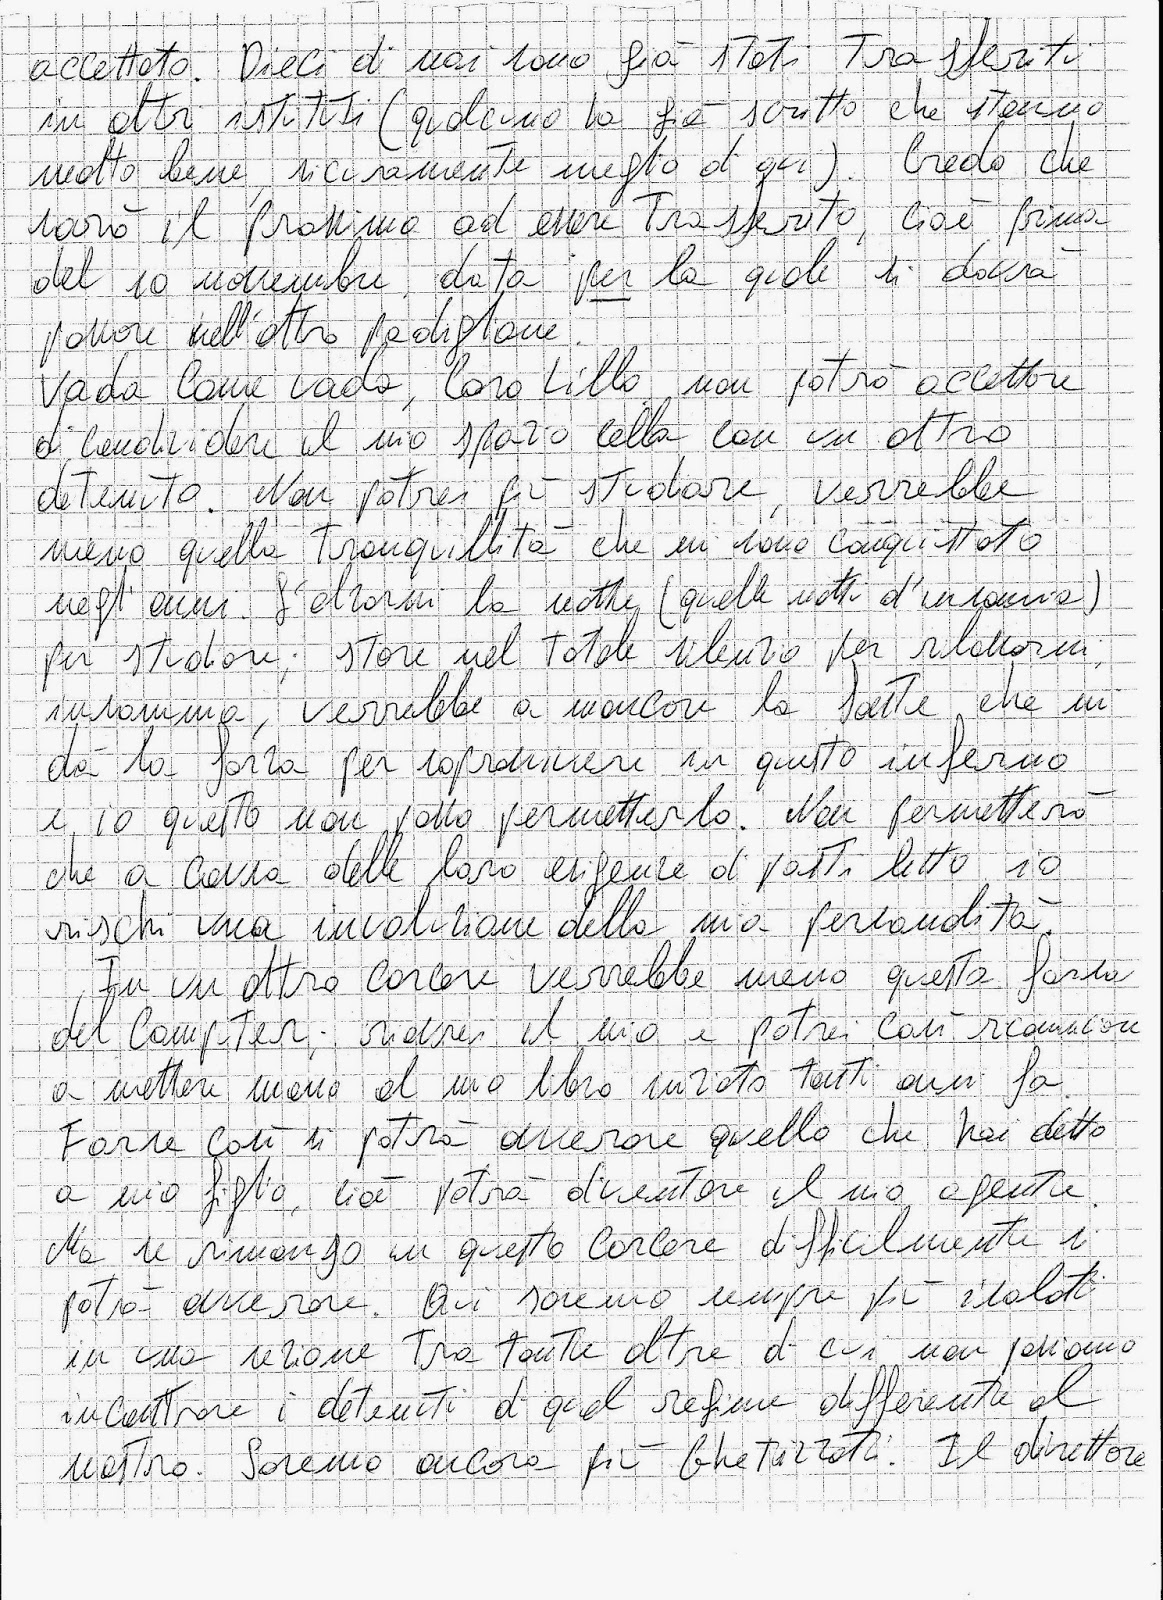 accettato. Dieci di noi sono già stati trasferiti
in altri istituti (qualcuno ha già scritto che stanno
molto bene, sicuramente meglio di qui). Credo che
sarò il prossimo ad essere trasferito, cioè prima
del 10 novembre, data per la quale si dovrà
passare nell'altro padiglione.
Vada come vada, caro Lillo, non potrò accettare
di condividere il mio spazio cella con un altro
detenuto. Non potrei più studiare, verrebbe
meno quella tranquillità che mi sono conquistato
negl'anni. L'alzarmi la notte, (quelle notti d'insonnia)
per studiare; stare nel totale silenzio per rilassarmi;
insomma, verrebbe a mancare la fonte che mi
dà la forza per sopravvivere in questo inferno
e io questo non posso permetterlo. Non permetterò
che a causa delle loro esigenze di posti letto io
rischi una involuzione della mia personalità.
In un altro carcere verrebbe meno questa farsa
del computer; riavrei il mio e potrei così ricominciare
a mettere mano al mio libro iniziato tanti anni fa.
Forse così si potrà avverare quello che hai detto
a mio figlio, cioè potrà diventare il mio agente.
Ma se rimango in questo carcere difficilmente si
potrà avverare. Qui saremo sempre più isolati
in una sezione tra tante altre di cui non possiamo
incontrare i detenuti di quel regime differente al
nostro. Saremo ancora più ghetizzati. Il direttore